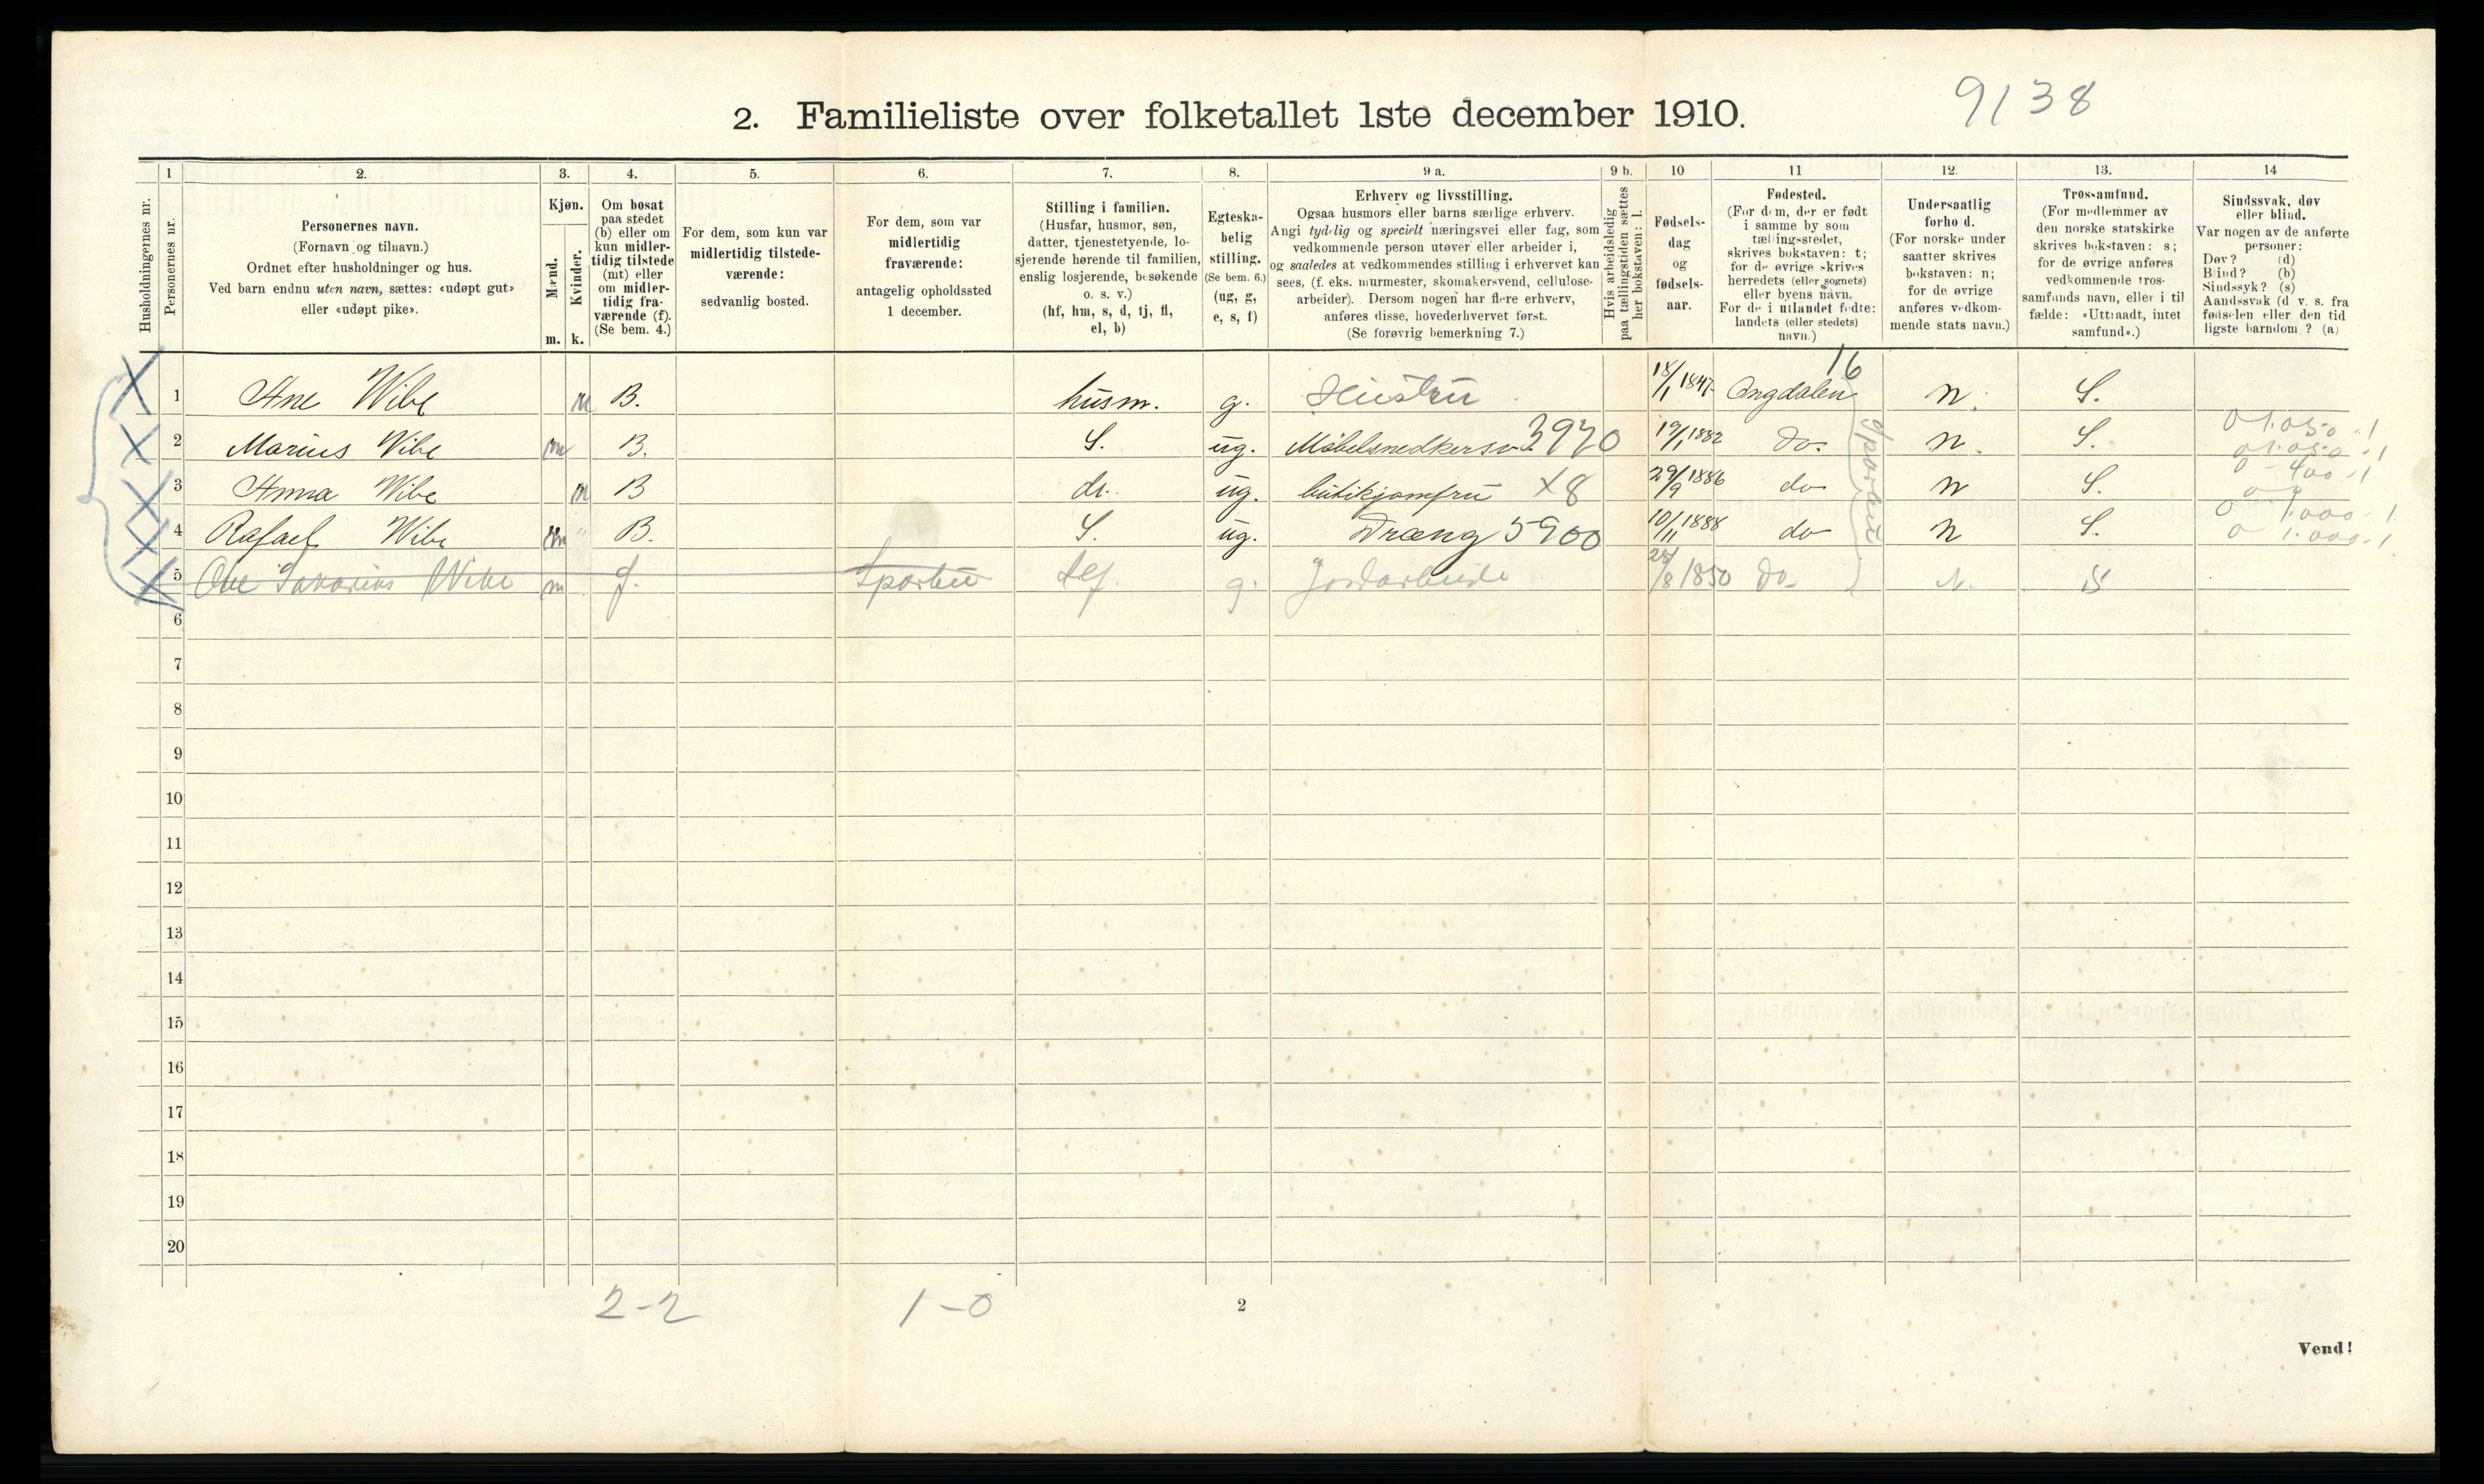 9138
2. Familieliste over folketallet 1ste december 1910.
1 2. 3. 4. 5. 6. 7. 8. 9 a. 9 b. 10 11 12. 13. 14
Husholdningernes nr.
Personernes nr.
Personernes navn.
(Fornavn og tilnavn.)
Ordnet efter husholdninger og hus.
Ved barn endnu uten navn, sættes: «udøpt gut»
eller «udøpt pike».
Kjøn.
Mænd.
Kvinder.
m. k.
Om bosat
paa stedet
(b) eller om
kun midler-
tidig tilstede
(mt) eller
om midler-
tidig fra-
værende (f).
(Se bem. 4.)
For dem, som kun var
midlertidig tilstede-
værende:
sedvanlig bosted.
For dem, som var
midlertidig
fraværende:
antagelig opholdssted
1 december.
Stilling i familien.
(Husfar, husmor, søn,
datter, tjenestetyende, lo-
sjerende hørende til familien,
enslig losjerende, besøkende
o. s. v.)
(hf, hm, s, d, tj, fl,
el, b)
Egteska-
belig
stilling.
(Se bem. 6.)
(ug, g,
e, s, f)
Erhverv og livsstilling.
Ogsaa husmors eller barns særlige erhverv.
Angi tydelig og specielt næringsvei eller fag, som
vedkommende person utøver eller arbeider i,
og saaledes at vedkommendes stilling i erhvervet kan
sees, (f. eks. murmester, skomakersvend, cellulose-
arbeider). Dersom nogen har flere erhverv,
anføres disse, hovederhvervet først.
(Se forøvrig bemerkning 7.)
Hvis arbeidsledig
paa tællingstiden sættes
her bokstaven: l.
Fødsels-
dag
og
fødsels-
aar.
Fødested.
(For dem, der er født
i samme by som
tællingsstedet,
skrives bokstaven: t;
for de øvrige skrives
herredets (eller sognets)
eller byens navn.
For de i utlandet fødte:
landets (eller stedets)
navn.)
Undersaatlig
forhold.
(For norske under
saatter skrives
bokstaven: n;
for de øvrige
anføres vedkom-
mende stats navn.)
Trossamfund.
(For medlemmer av
den norske statskirke
skrives bokstaven: s;
for de øvrige anføres
vedkommende tros-
samfunds navn, eller i til
fælde: «Uttraadt, intet
samfund».)
Sindssvak, døv
eller blind.
Var nogen av de anførte
personer:
Døv? (d)
Blind? (b)
Sindssyk? (s)
Aandssvak (d v. s. fra
fødselen eller den tid
ligste barndom ? (a)
16
1 Ane Wibe B. husm. g. Hustru 18/1 1847 Ongdalen n. S.
2 Marius Wibe m B. S. ug. Møbelsnedkersv. 3970 19/1 1882 do. n. S. 0 1.050-1
0 1.050-1
3 Anna Wibe B dr. ug. butikjomfru X8 29/9 1886 do n S. 0 - 400-1
4 Rafael Wibe m B. S. ug. Dræng 5900 10/11 1888 do n S. 0 1.000-1
0 1.000-1
Sparbu
5 Ole Sakarius Wibe m f. Sparbu g. Jordarbeide 24/8 1850 do N. S
6
7
8
9
10
11
12
13
14
15
16
17
18
19
20
2-2 1-0 2
Vend!